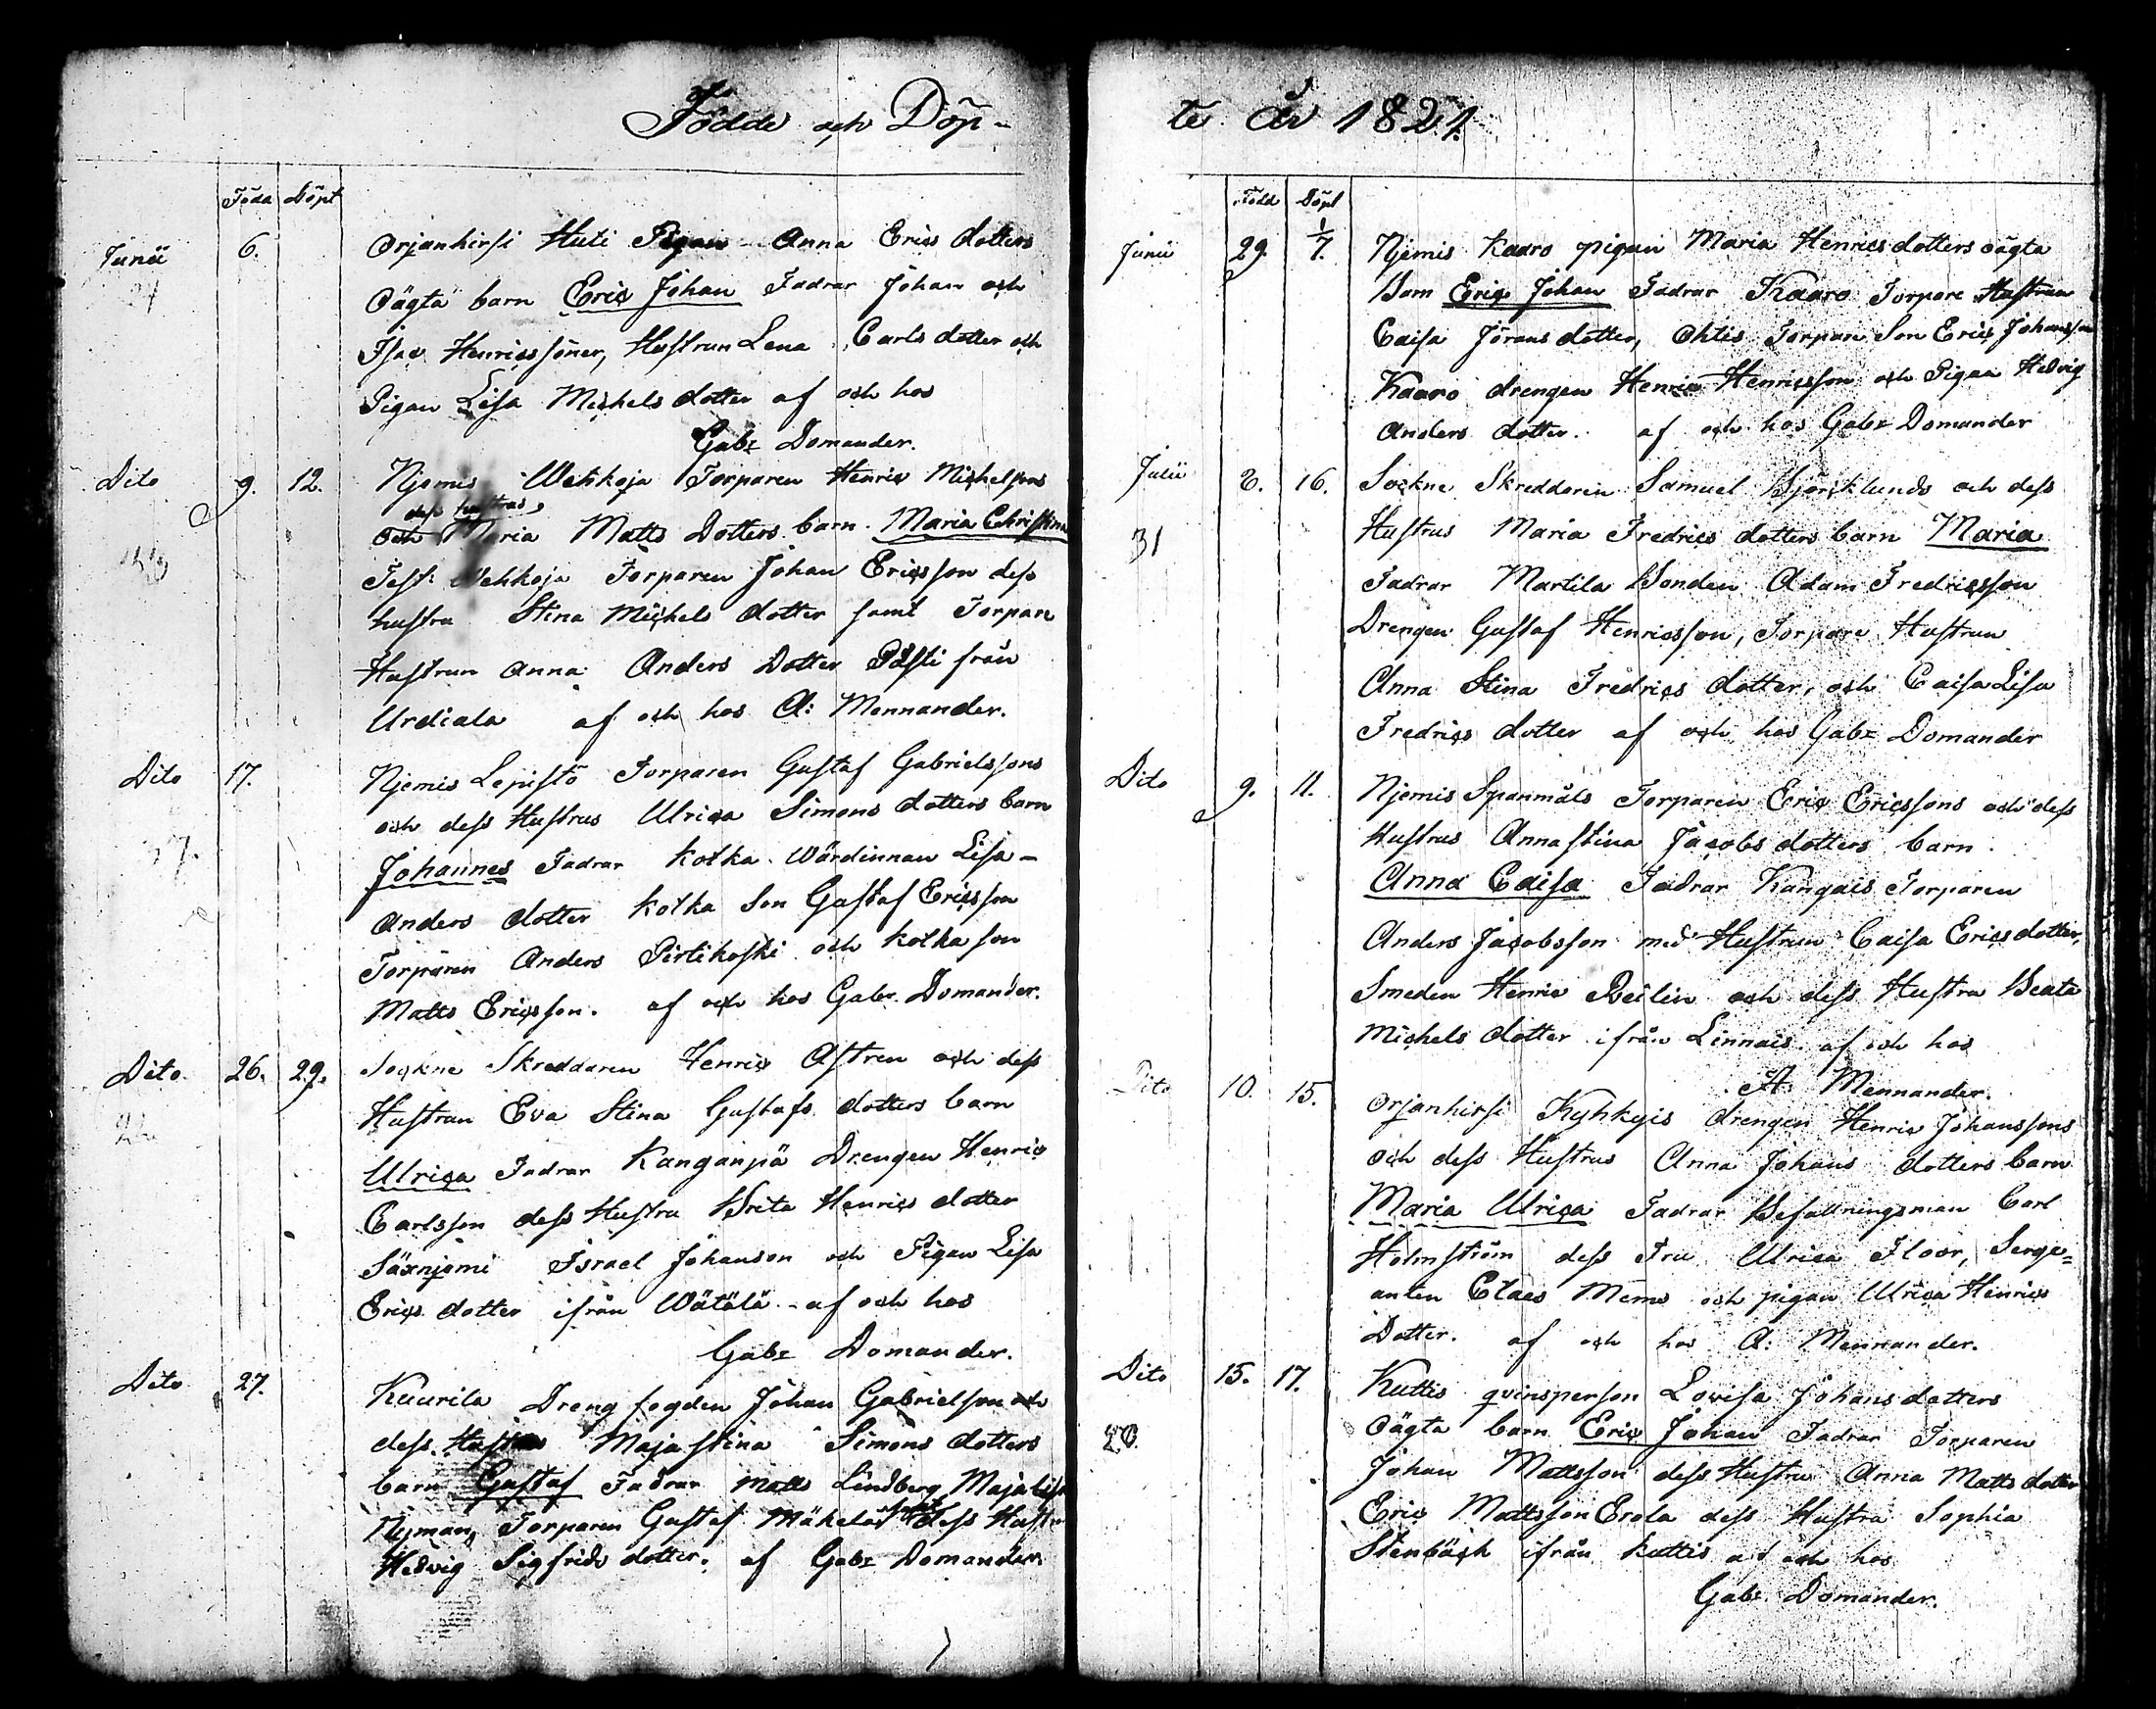 Födde och Döp-
Föda Döpt
Junii 6. Orjanhirsi Huti Pigan Anna Erics dotters
Oägta barn Eric Johan Fadrar Johan och
Isac Henricssöner, Hustrun Lena Carls dotter och
Pigan Lisa Michels dotter af och hos
Gabr Domander.
Dito 9. 12. Njemis Wehkoja Torparen Henric Michelsons
dess hustrus
och Maria Matts Dotters barn Maria Christina
Test: Wehkoja Torparen Johan Ericsson dess
hustru Stina Michels dotter samt Torpare
Hustrun Anna Anders Dotter Pásti från
Urdiala af och hos A: Mennander.
Dito 17. Njemis Lepistö Torparen Gustaf Gabrielssons
och dess Hustrus Ulrica Simons dotters barn
37.
Johannes Fadrar Kotka Wärdinnan Lisa-
Anders dotter Kotka Son Gustaf Ericsson
Torparen Anders Pirtikoski och Kotka son
Matts Ericsson. af och hos Gabr. Domander.
Dito 26. 29. Sockne Skreddaren Henric Astren och dess
Hustrun Eva Stina Gustafs dotters barn
Ulrica Fadrar Kanganpä Drengen Henric
Carlsson dess Hustru Brita Henrics dotter
Säxnjemi Israel Johanson och Pigan Lisa
Erics dotter ifrån Wätälä af och hos
Gabr Domander.
Dito 27. Kuurila Dreng fogden Johan Gabrielson och
dess Hustrus Maja Stina Simons dotters
barn Gustaf Fadrar Matts Lindberg Maja Lisa
Nyman, Torparen Gustaf Mäkelä dess Hustru
Hedvig Sigfrids dotter. af Gabr Domander
te År 1821.
Född Döpt
Junii 29. 1/7. Njemis Kaaro pigan Maria Henrics dotters oägta
Barn Eric Johan Fadrar Kaaro Torpare Hustrun
Caisa Jörans dotter, Ohtis Torpare Son Eric Johansson
Kaaro drengen Henric Henricsson och Pigan Hedvig
Anders dotter. af och hos Gabr Domander
Julii 8. 16. Sockne Skreddaren Samuel Björklunds och dess
31 Hustrus Maria Fredrics dotters barn Maria
Fadrar Martila Bonden Adam Fredricsson
Drengen Gustaf Henricsson, Torpare Hustrun
Anna Stina Fredrics dotter, och Caisa Lisa
Fredrics dotter af och hos Gabr Domander
Dito 9. 11. Njemis Spanmäls Torparen Eric Ericssons och dess
Hustrus Anna Stina Jacobs dotters barn
Anna Caisa Fadrar Kangais Torparen
Anders Jacobsson med Hustrun Caisa Erics dotter,
Smeden Henric Reilin och dess Hustru Beata
Michels dotter ifrån Linnais af och hos
A: Mennander.
Dito 10. 15. Orjanhirsi Kyhkyis drengen Henric Johanssons
och dess Hustrus Anna Johans dotters barn
Maria Ulrica Fadrar Befallningsman Carl
Holmström dess Fru Ulrica Floor, Serge=
anten Claes Meme och pigan Ulrica Henrics
Dotter. af och hos A: Mennander.
Dito 15. 17. Kuttis qvinsperson Lovisa Johans dotters
20. Oägta barn Eric Johan Fadrar Torparen
Johan Mattsson dess Hustru Anna Matts dotter
Eric Mattsson Erola dess Hustru Sophia
Stenbäck ifrån Kuttis af och hos
Gabr Domander.